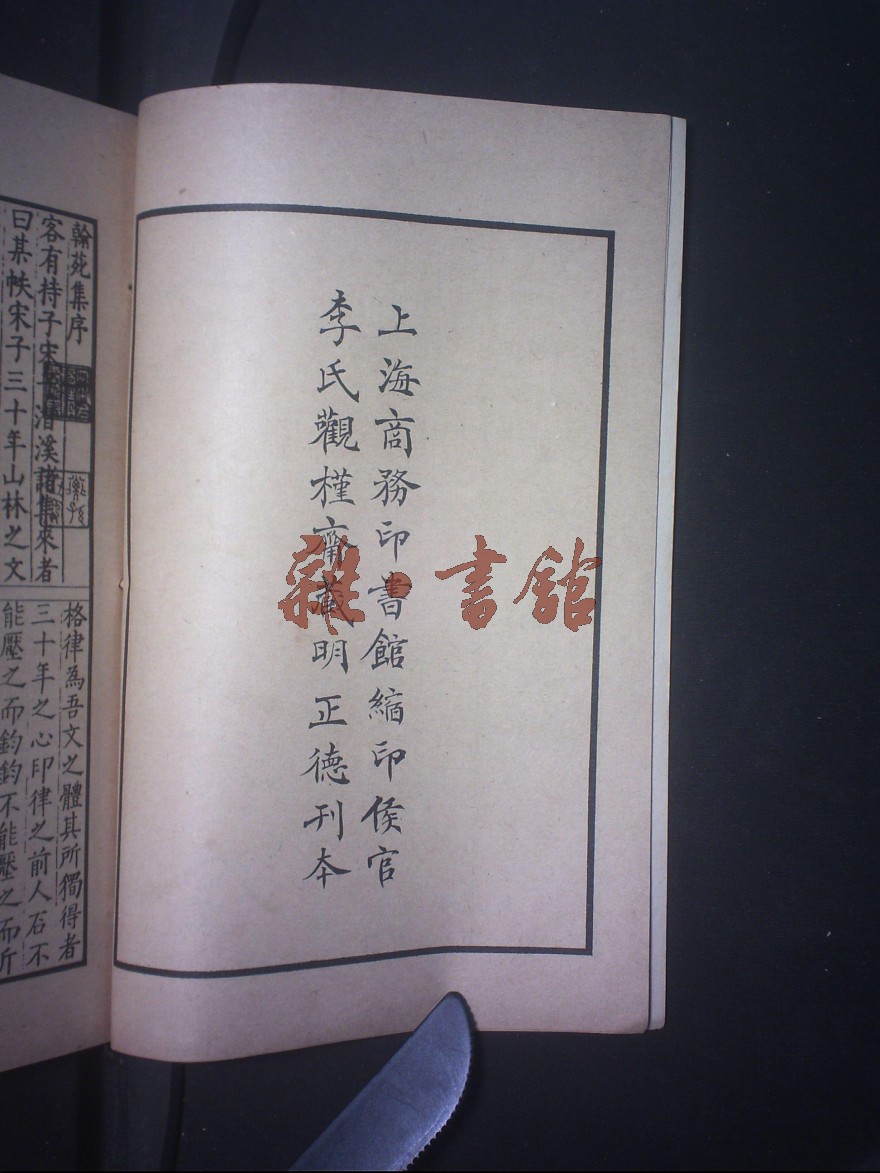 上海商務印書館縮印侯官
李氏觀槿齋藏明正德刊本
雜·書館
翰苑集序
客有持子宋子潛溪諸集來者
曰某帙宋子三十年山林之文
格律為吾文之體其所獨得者
三十年之心印律之前人石不
能壓之而鈞鈞不能壓之而斤